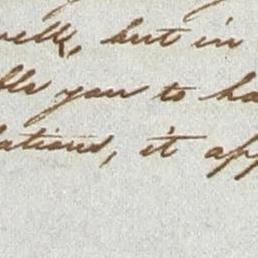 well, but in
ble you to ha
lations, it app